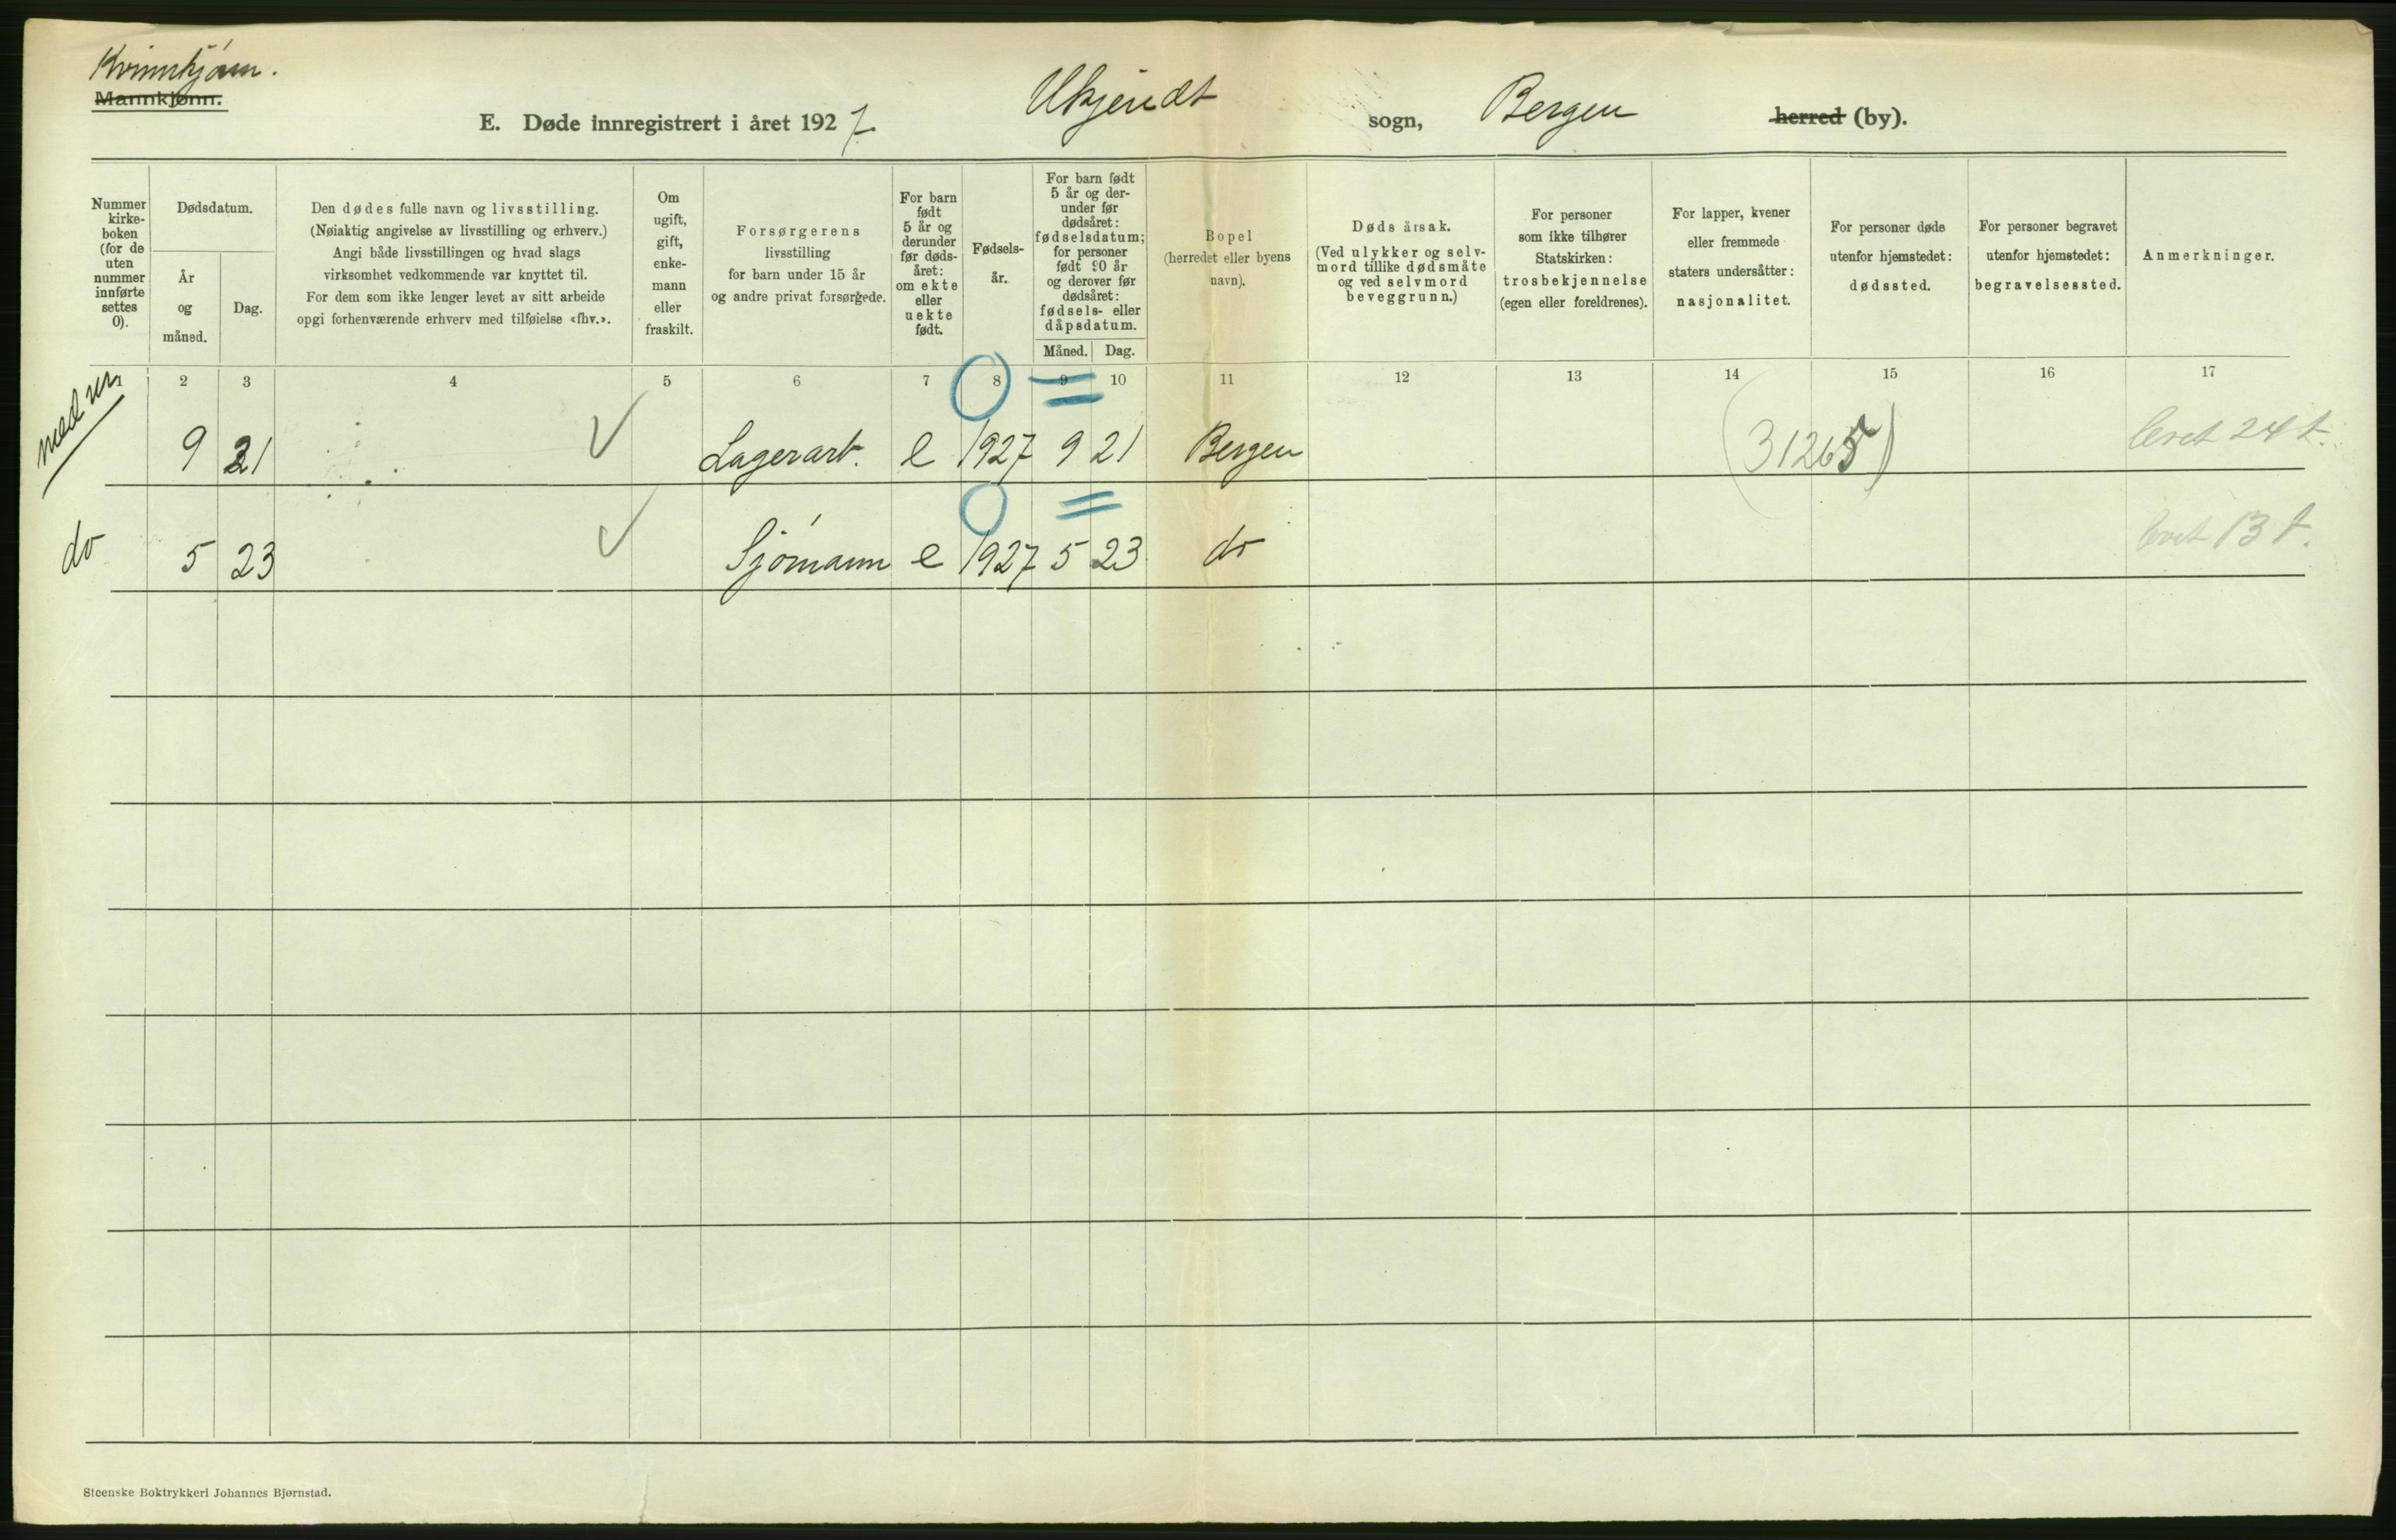 Kvinnkjønn.
Mannkjønn.
E. Døde innregistrert i året 1927. Ukjendt sogn, Bergen herred (by).
Nummer
kirke-
boken
(for de
uten
nummer
innførte
settes
0).
Dødsdatum.
År
og
måned.
Dag.
Den dødes fulle navn og livsstilling.
(Nøiaktig angivelse av livsstilling og erhverv.)
Angi både livsstillingen og hvad slags
virksomhet vedkommende var knyttet til.
For dem som ikke lenger levet av sitt arbeide
opgi forhenværende erhverv med tilføielse «fhv.».
Om
ugift,
gift,
enke-
mann
eller
fraskilt.
Forsørgerens
livsstilling
for barn under 15 år
og andre privat forsørgede.
For barn
født
5 år og
derunder
før døds-
året:
om ekte
eller
uekte
født.
Fødsels-
år.
For barn født
5 år og der-
under før
dødsåret:
fødselsdatum;
for personer
født 90 år
og derover før
dødsåret:
fødsels- eller
dåpsdatum.
Måned. Dag.
Bopel
(herredet eller byens
navn).
Døds årsak.
(Ved ulykker og selv-
mord tillike dødsmåte
og ved selvmord
beveggrunn.)
For personer
som ikke tilhører
Statskirken:
trosbekjennelse
(egen eller foreldrenes).
For lapper, kvener
eller fremmede
staters undersåtter:
nasjonalitet.
For personer døde
utenfor hjemstedet:
dødssted.
For personer begravet
utenfor hjemstedet:
begravelsessted.
Anmerkninger.
1 2 3 4 5 6 7 8 9 10 11 12 13 14 15 16 17
9 21 Lagerarb. e 1927 9 21 Bergen (31265) levet 24 t.
do 5 23 Sjømann e 1927 5 23 do levet 13 t.
Steenske Boktrykkeri Johannes Bjørnstad.